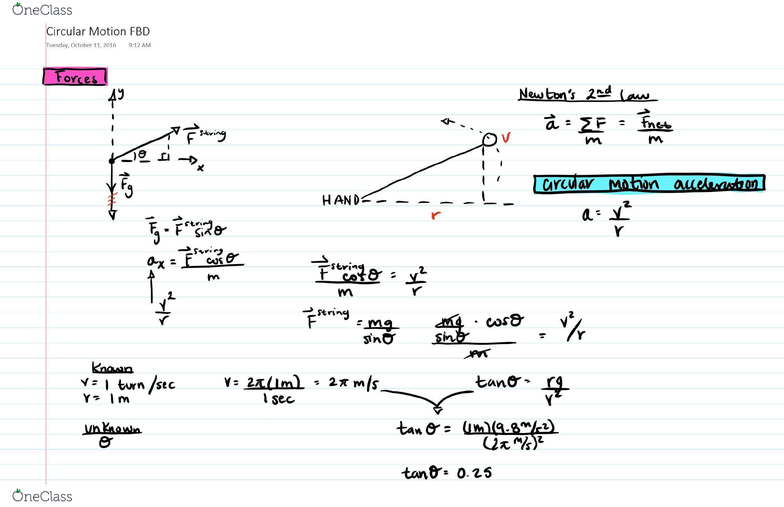 OneClass
Circular Motion FBD
Tuesday, October 11, 2016 9:12 AM
Forces
y
F string
θ
x
Fg
Fg = F string sinθ
ax = F string cosθ / m
v²/r
HAND
r
v
Newton's 2nd Law
a = ΣF/m = Fnet/m
circular motion acceleration
a = v²/r
F string cosθ / m = v²/r
F string = mg/sinθ
mg/sinθ · cosθ / m = v²/r
Known
v = 1 turn/sec
r = 1m
unknown
θ
v = 2π(1m)/1 sec = 2π m/s
tanθ = rg/v²
tanθ = (1m)(9.8 m/s²)/(2π m/s)²
tanθ = 0.25
OneClass